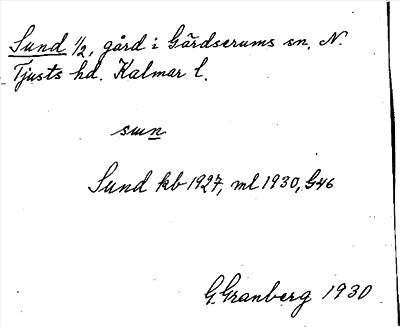 Sund 1/2, gård i Gärdserums sn, N.
Tjusts hd. Kalmar l.
sun
Sund kb 1927, ml 1930, G46
G. Granberg 1930